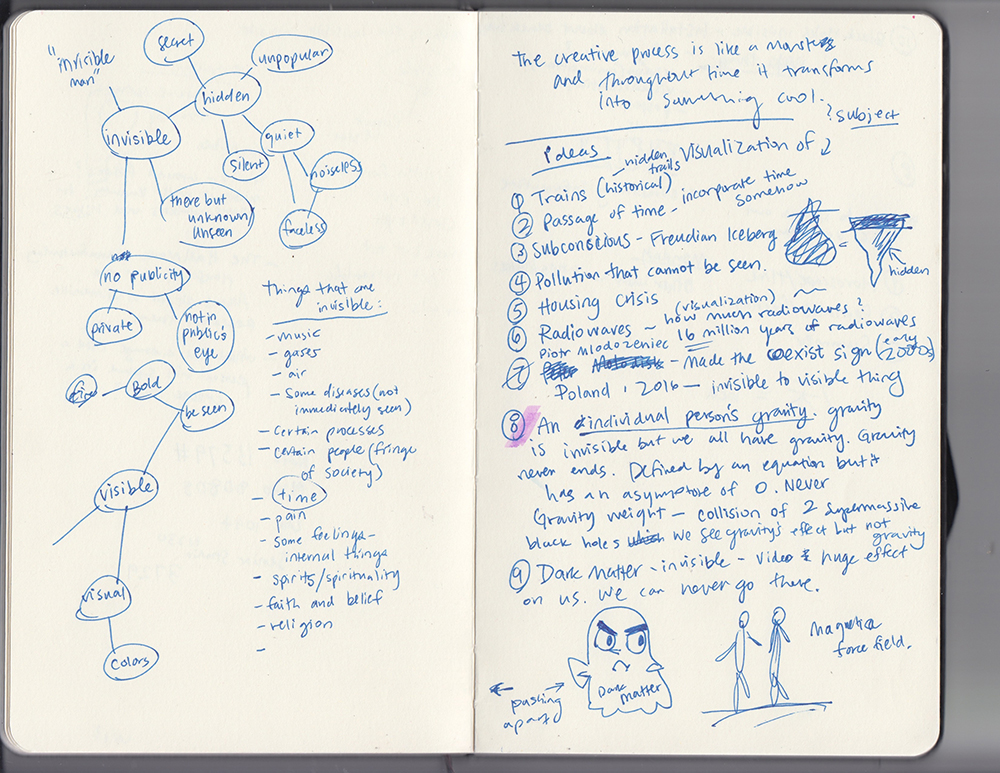 "invisible
man"
secret
unpopular
hidden
invisible
quiet
silent
noiseless
faceless
there but
unknown/
unseen
no publicity
private
not in
public's
eye
Bold
be seen
visible
visual
colors
Things that are
invisible:
- music
- gases
- air
- Some diseases (not
immediately seen)
- Certain processes
- certain people (fringe
of society)
- time
- pain
- some feelings -
internal things
- spirits/spirituality
- faith and belief
- religion
-
The creative process is like a
and throughout time it transforms
into something cool.
? subject
Ideas
- hidden
trails
Visualization of
① Trains (historical)
② Passage of time - incorporate time
somehow
③ Subconscious - Freudian Iceberg
=
hidden
④ Pollution that cannot be seen.
⑤ Housing Crisis
(visualization)
⑥ Radiowaves - how much radiowaves?
16 million years of radiowaves
Piotr Mlodozeniec
⑦ - Made the coexist sign (early
2000s)
Poland, 2016 - invisible to visible thing
⑧ An individual person's gravity. gravity
is invisible but we all have gravity. Gravity
never ends. Defined by an equation but it
has an asymptote of 0. Never
Gravity weight - collision of 2 supermassive
black holes we see gravity's effect but not
gravity
⑨ Dark Matter - invisible - video & huge effect
on us. We can never go there.
Dark Matter
pushing
apart
Magnetic
force field.